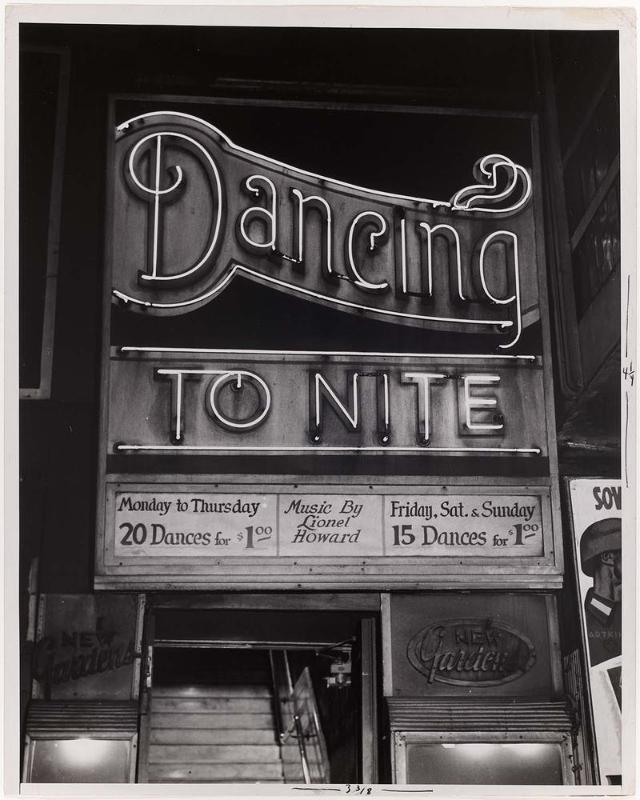 Dancing
TO NITE
Monday to Thursday
20 Dances for $1.00
Music By
Lionel
Howard
Friday, Sat. & Sunday
15 Dances for $1.00
NEW
Gardens
NEW
Gardens
SOV
ARTKI
4 1/4
3 3/8